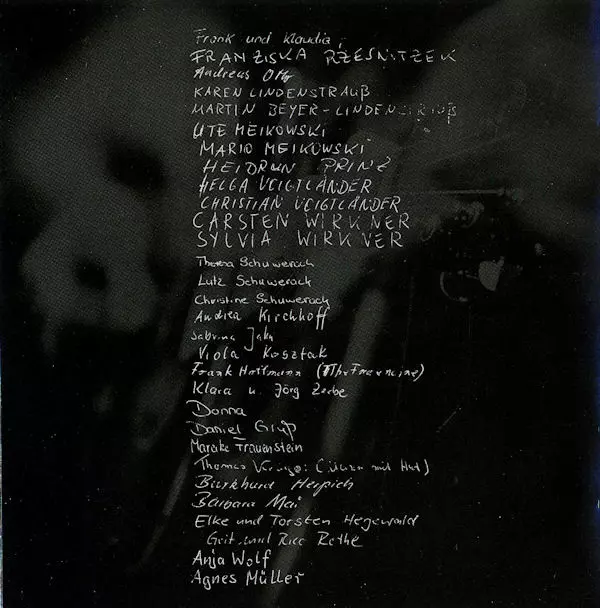 Frank und Klaudia,
FRANZISKA RZESNITZEK
Andreas Ott
KAREN LINDENSTRAUß
MARTIN BEYER-LINDENSTRAUß
UTE MEIKOWSKI
MARIO MEIKOWSKI
HEIDRUN PRINZ
HELGA VOIGTLÄNDER
CHRISTIAN VOIGTLÄNDER
CARSTEN WIRKNER
SYLVIA WIRKNER
Theresa Schuwerack
Lutz Schuwerack
Christine Schuwerack
Andrea Kirchhoff
Sabrina Jahn
Viola Kosztak
Frank Hoffmann
Klara u. Jörg Zerbe
Donna
Daniel Gruß
Mareike Trauenstein
Thomas (mit Hut)
Burkhard Herpich
Barbara Mai
Elke und Torsten Hegewald
Geit und Rico Rothe
Anja Wolf
Agnes Müller